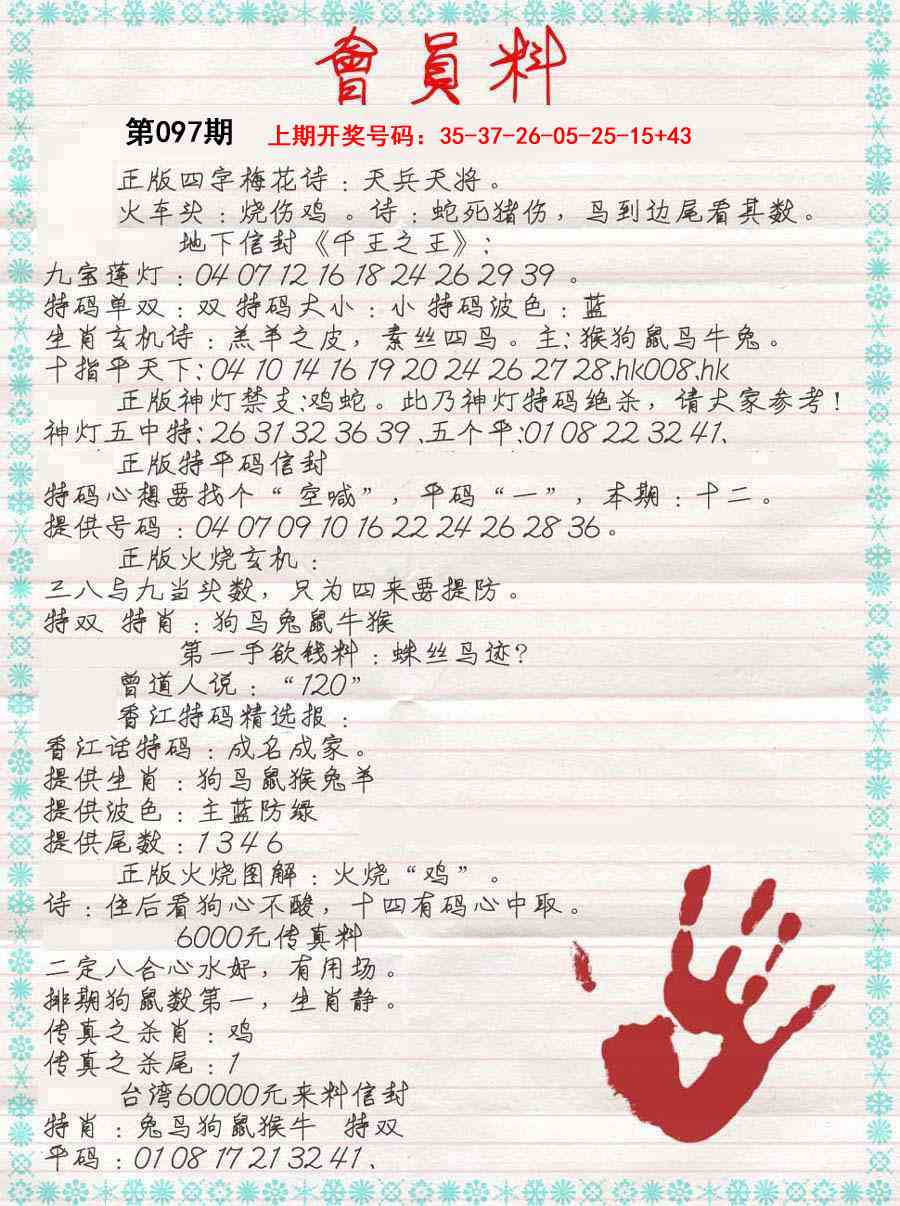 會員料
第097期 上期开奖号码：35-37-26-05-25-15+43
正版四字梅花诗：天兵天将。
火车头：烧伤鸡 。诗：蛇死猪伤，鸟到边尾看其数。
地下信封《千王之王》：
九宝莲灯：04 07 12 16 18 24 26 29 39 。
特码单双：双 特码大小：小 特码波色：蓝
生肖玄机诗：羔羊之皮，素丝四鸟。主：猴狗鼠鸟牛兔。
十指平天下：04 10 14 16 19 20 24 26 27 28.hk008.hk
正版神灯禁支：鸡蛇。此乃神灯特码绝杀，请大家参考！
神灯五中特：26 31 32 36 39 、五个平：01 08 22 32 41、
正版特平码信封
特码心想要找个“空喊”，平码“一”，本期：十二。
提供号码：04 07 09 10 16 22 24 26 28 36。
正版火烧玄机：
三八与九当头数，只为四来要提防。
特双 特肖：狗鸟兔鼠牛猴
第一手欲钱料：蛛丝鸟迹？
曾道人说：“120”
香江特码精选报：
香江话特码：成名成家。
提供生肖：狗鸟鼠猴兔羊
提供波色：主蓝防绿
提供尾数：1 3 4 6
正版火烧图解：火烧“鸡”。
诗：住后看狗心不酸，十四有码心中取。
6000元传真料
二定八合心水好，有用场。
排期狗鼠数第一，生肖静。
传真之杀肖：鸡
传真之杀尾：1
台湾60000元来料信封
特肖：兔鸟狗鼠猴牛 特双
平码：01 08 17 21 32 41、